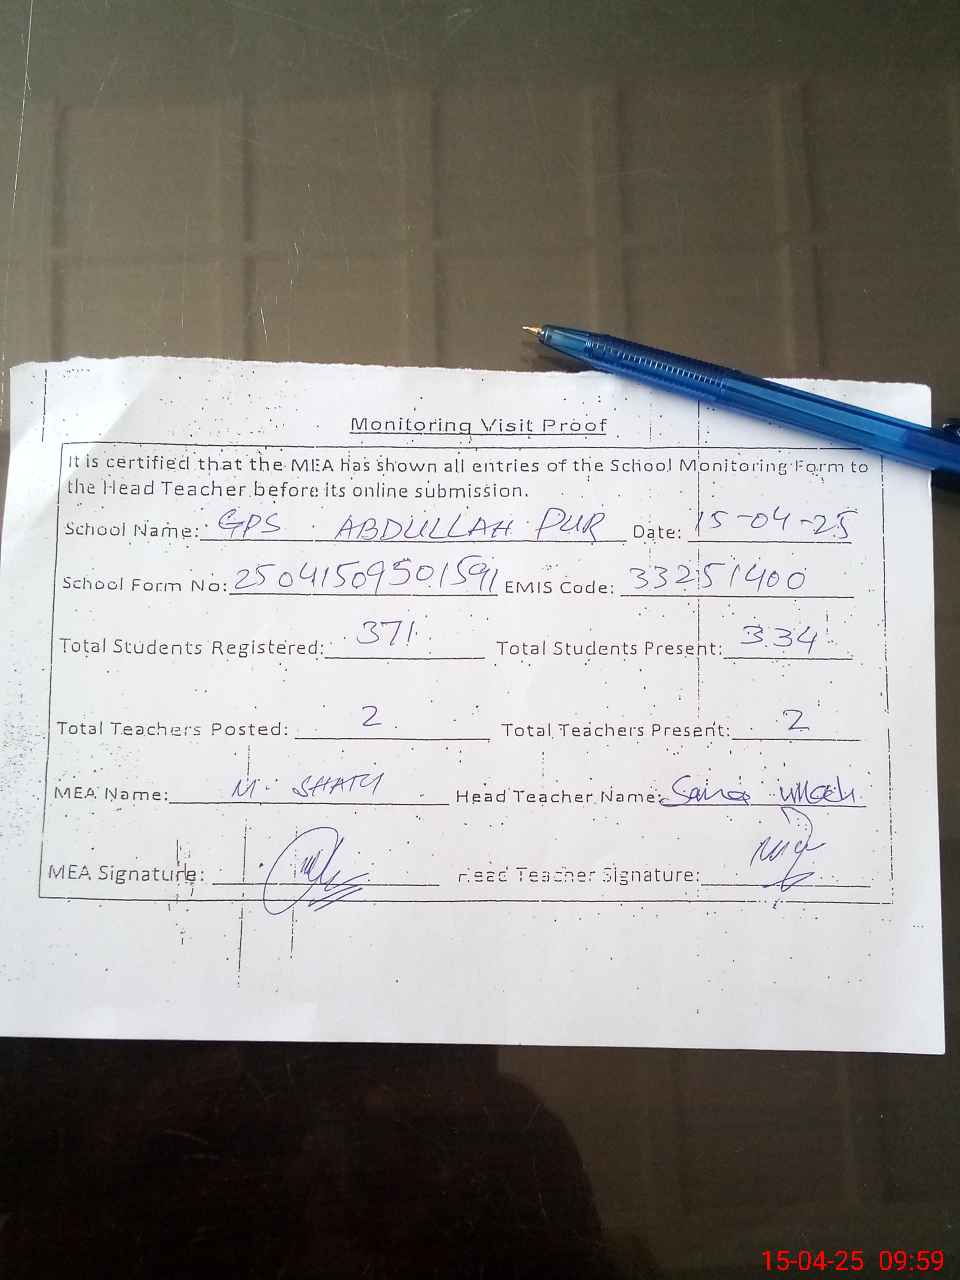 Monitoring Visit Proof
It is certified that the MEA has shown all entries of the School Monitoring Form to
the Head Teacher before its online submission.
School Name: GPS ABDULLAH PUR Date: 15-04-25
School Form No: 25041509501591 EMIS Code: 33251400
Total Students Registered: 371 Total Students Present: 334
Total Teachers Posted: 2 Total Teachers Present: 2
MEA Name: M. Head Teacher Name:
MEA Signature: Head Teacher Signature:
15-04-25 09:59